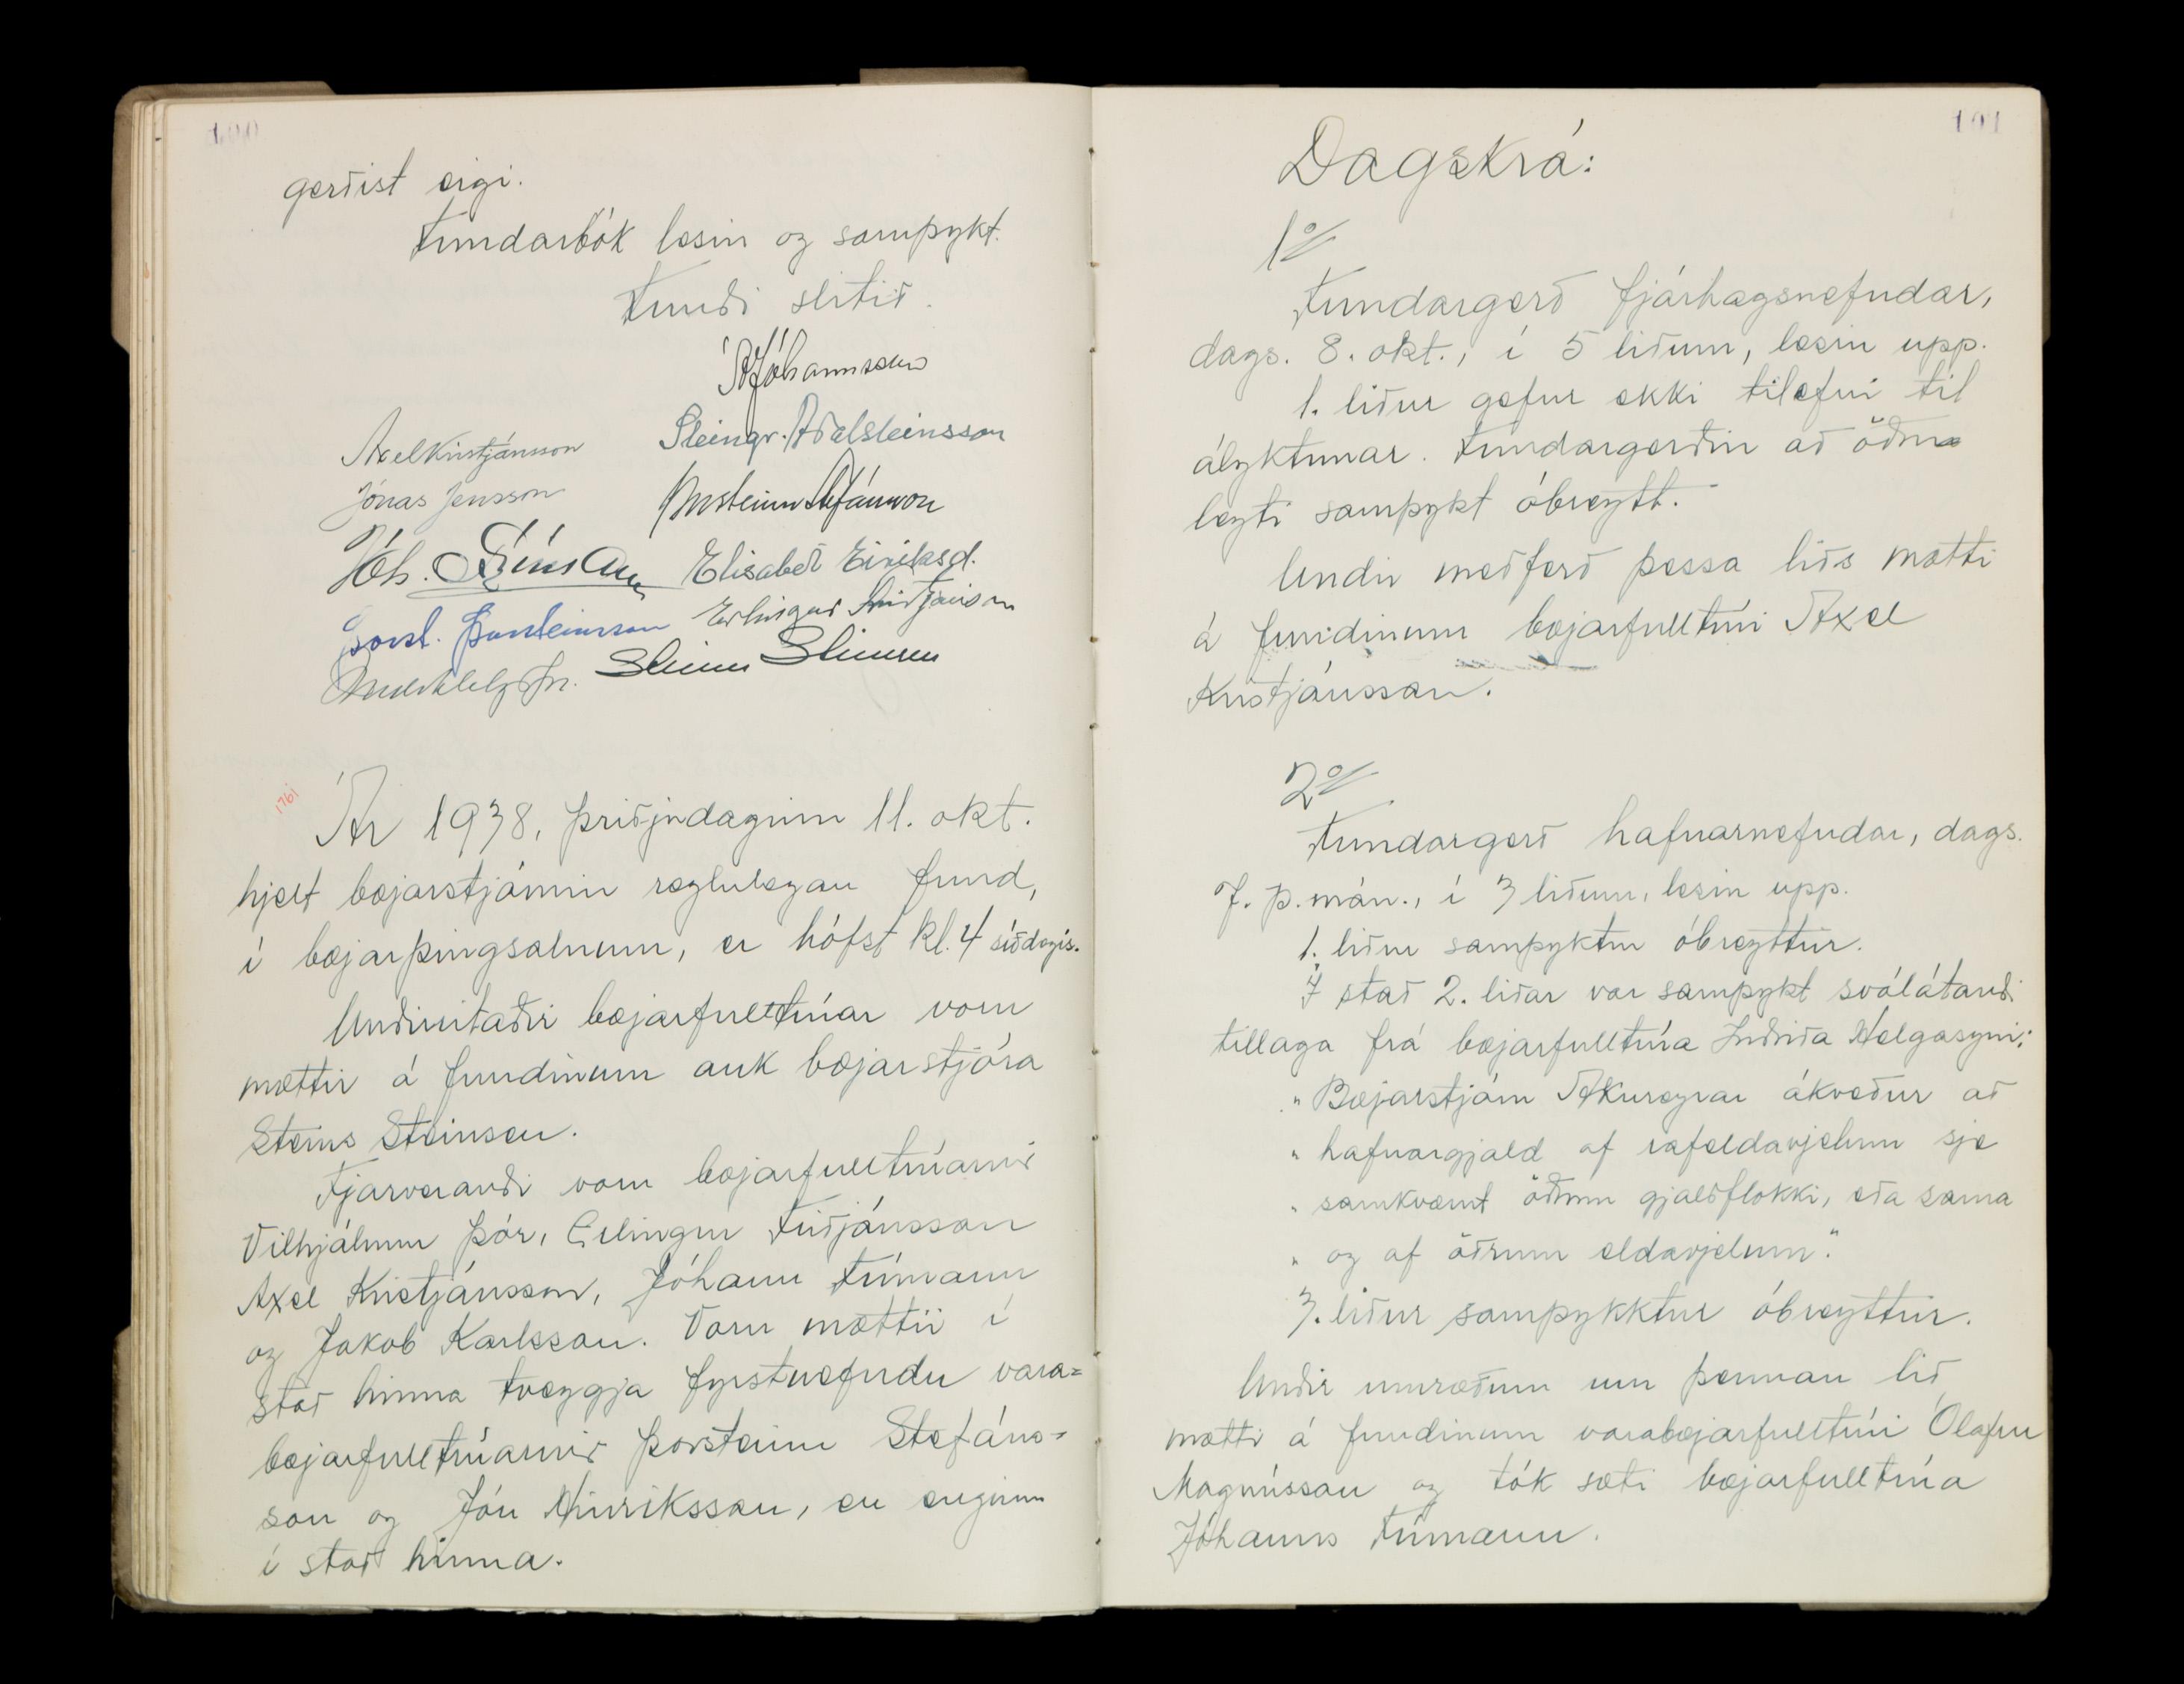 100
gerðist eigi.
Fundarbók lesin og samþykt.
Fundi slitið.
Á Jóhannsson
Axel Kristjánsson
Steingr. Aðalsteinsson
Jónas Jensson
Þorsteinn Stefánsson
Jóh. Frímann
Elísabet Eiríksd.
Þorst. Þorsteinsson
Erlingur Friðjónsson
Indriði Helgason.
Steinn Steinsen
1761
Ár 1938, þriðjudaginn 11. okt.
hjelt bæjarstjórnin reglulegan fund,
í bæjarþingsalnum, er hófst kl. 4 síðdegis.
Undirritaðir bæjarfulltrúar voru
mættir á fundinum auk bæjarstjóra
Steins Steinsen.
Fjarverandi voru bæjarfulltrúarnir
Vilhjálmur Þór, Erlingur Friðjónsson
Axel Kristjánsson, Jóhann Frímann
og Jakob Karlsson. Voru mættir í
stað hinna tveggja fyrstnefndu vara=
bæjarfulltrúarnir Þorsteinn Stefáns=
son og Jón Hinriksson, en enginn
í stað hinna.
101
Dagskrá:
1º/
Fundargerð fjárhagsnefndar,
dags. 8. okt., í 5 liðum, lesin upp.
1. liður gefur ekki tilefni til
ályktunar. Fundargerðin að öðru
leyti samþykt óbreytt.
Undir meðferð þessa liðs mætti
á fundinum bæjarfulltrúi Axel
Kristjánsson.
2º/
Fundargerð hafnarnefndar, dags.
7. þ. mán., í 3 liðum, lesin upp.
1. liður samþyktur óbreyttur.
Í stað 2. liðar var samþykt svólátandi
tillaga frá bæjarfulltrúa Indriða Helgasyni:
„ Bæjarstjórn Akureyrar ákveður að
„ hafnargjald af rafeldavjelum sje
„ samkvæmt öðrum gjaldflokki, eða sama
„ og af öðrum eldavjelum."
3. liður samþykktur óbreyttur.
Undir umræðum um þennan lið
mætti á fundinum varabæjarfulltrúi Ólafur
Magnússon og tók sæti bæjarfulltrúa
Jóhanns Frímann.